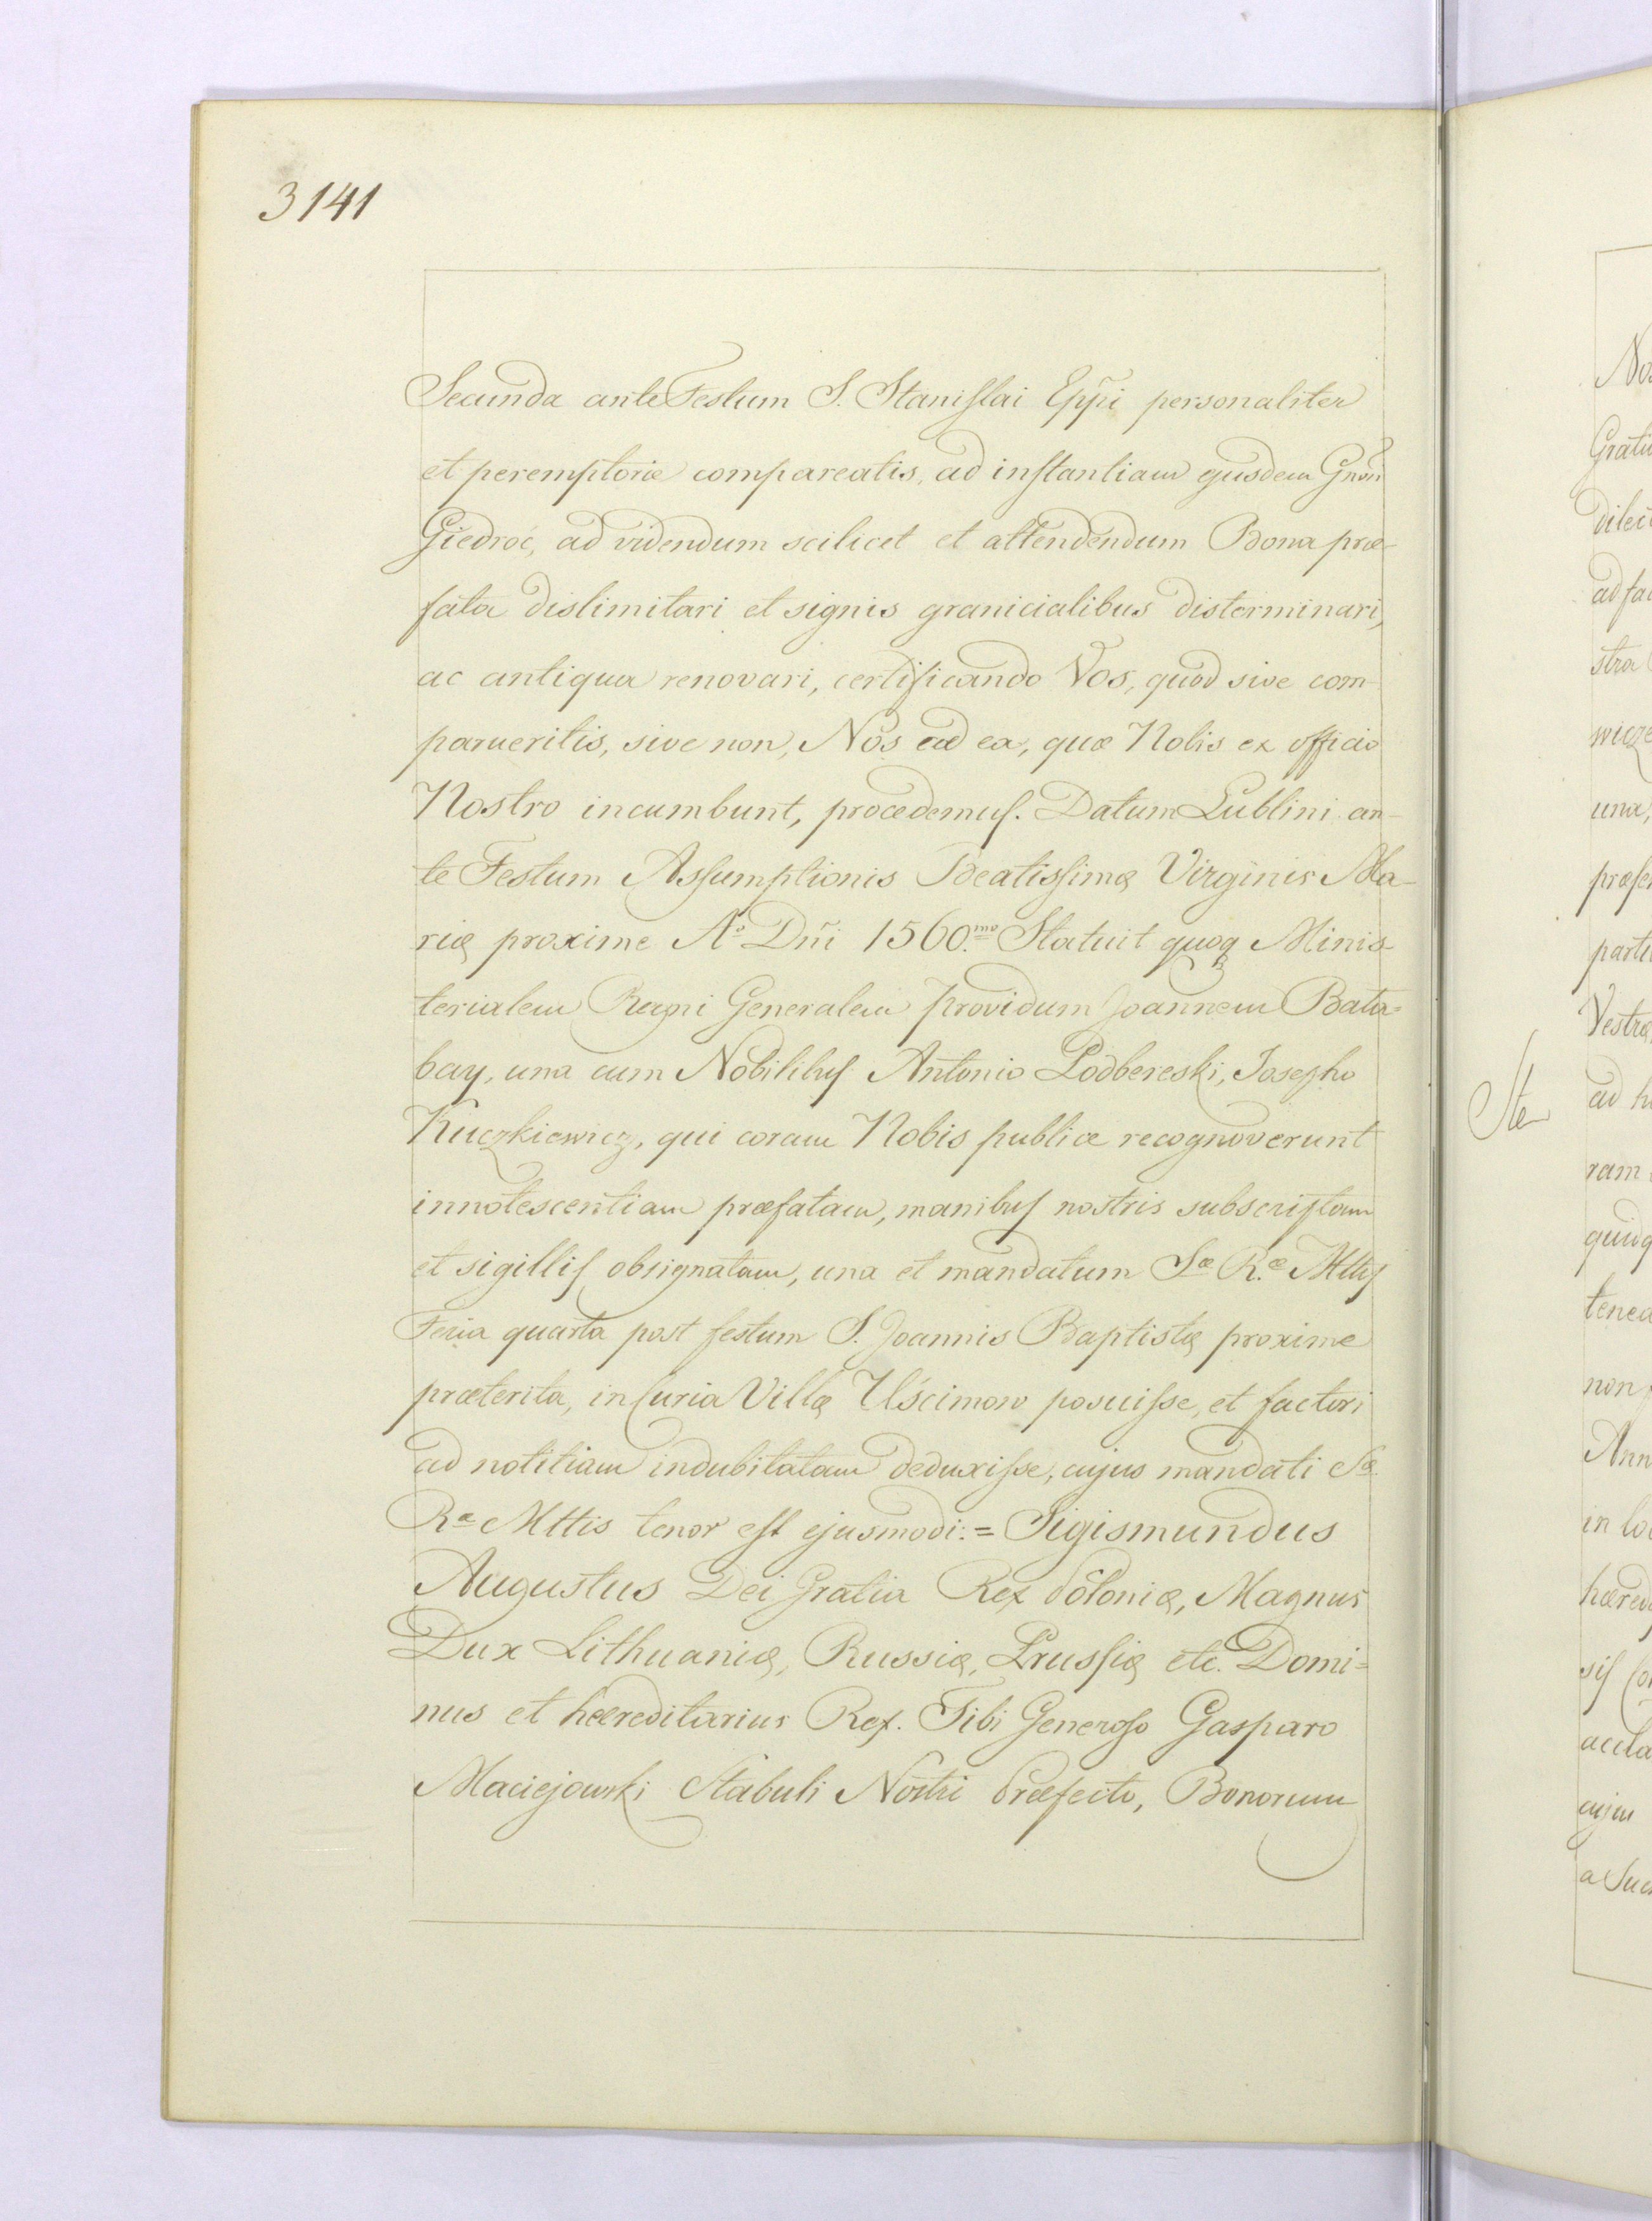 3141
Secunda ante Festum S. Stanislai Epp̃i personaliter
et peremptorie compareatis, ad instantiam ejusdem Gnõsi
Giedroć, ad videndum scilicet et attendendum Bona præ-
fata dislimitari et signis granicialibus disterminari,
ac antiqua renovari, certificando Vos, quod sive com-
parueritis, sive non, Nos ad ea, quæ Nobis ex officio
Nostro incumbunt, procedemus. Datum Lublini an-
te Festum Assumptionis Beatissimæ Virginis Ma-
riæ proxime Aº Dñi 1560.mo Statuit quoq Minis-
terialem Regni Generalem providum Joannem Bata-
bay, una cum Nobilibus Antonio Podbereski, Josepho
Kuczkiewicz, qui coram Nobis publice recognoverunt
innotescentiam præfatam, manibus nostris subscriptam
et sigillis obsignatam, una et mandatum Sæ R.æ Mttis
Feria quarta post festum S. Joannis Baptistæ proxime
præterita, in Curia Villæ Uścimow posuisse, et factori
ad notitiam indubitatam deduxisse, cujus mandati Sæ
Ræ Mttis tenor est ejusmodi: = Sigismundus
Augustus Dei Gratia Rex Poloniæ, Magnus
Dux Lithuaniæ, Russiæ, Prussiæ etc. Domi-
nus et hæreditarius Rex. Tibi Generoso Gasparo
Maciejowski Stabuli Nostri Præfecto, Bonorum
Gratia
ad fa
stra
una,
Vestra,
Ste
ad h
ram
non
Ann
in lo
hæred
a Suc